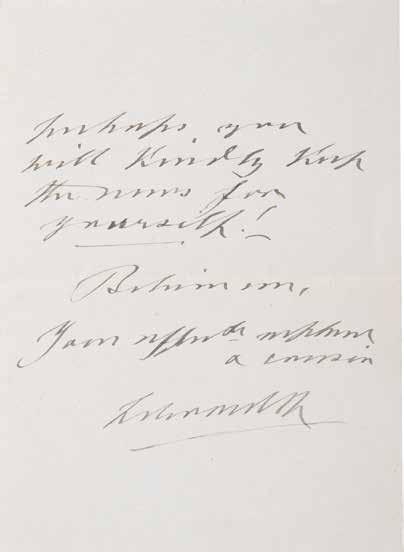 perhaps you
will Kindly Keep
the news for
yourself!
Believe me,
Your affte nephew
& cousin